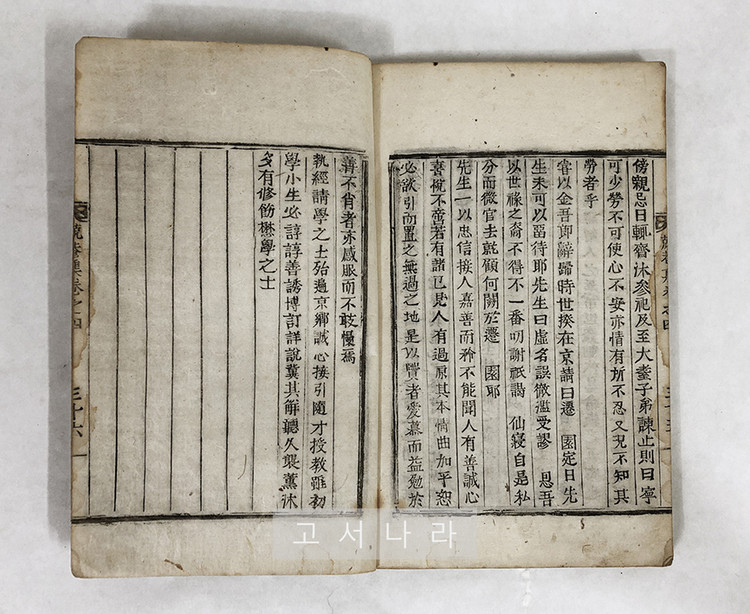 傍親忌日輒齋沐參祀及至大耋子弟諫止則曰寧
可少勞不可使心不安亦情有所不忍又況不知其
勞者乎
嘗以金吾郞辭歸時世揆在京請曰遷 園定日先
生未可以留待耶先生曰虛名誤徹濫受謬 恩吾
以世祿之裔不得不一番叨謝祇謁 仙寢自是私
分而微官去就顧何關於遷 園耶
先生一以忠信接人嘉善而矜不能聞人有善誠心
喜悅不啻若有諸己見人有過原其本情曲加平恕
必談引而置之無過之地是以賢者愛慕而益勉於
善不肖者亦感服而不敢慢焉
執經請學之士殆遍京鄕誠心接引隨才授敎雖初
學小生必諄諄善誘博訂詳說冀其解聽久襲薰沐
多有修飭懋學之士
集卷之四
三十六
고서나라